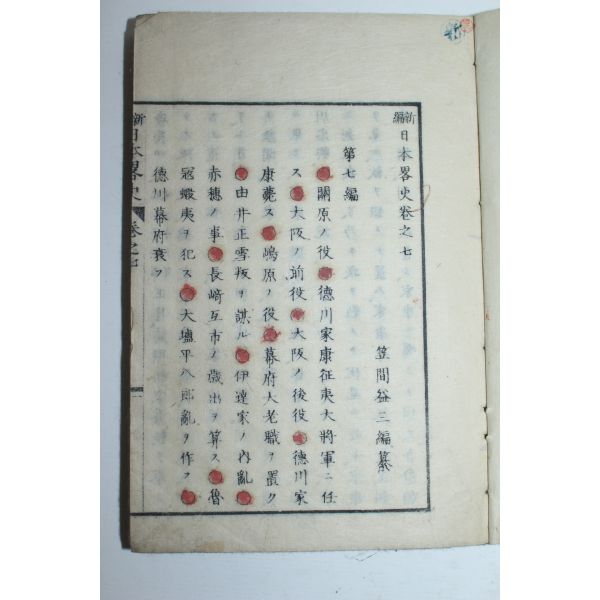 新編日本畧史卷之七
笠間益三編纂
第七編
關原ノ役●德川家康征夷大將軍ニ任
ス●大阪ノ前役●大阪ノ後役●德川家
康薨ス●嶋原ノ役●幕府大老職ヲ置ク
●由井正雪叛ヲ謀ル●伊達家ノ內亂●
赤穗ノ事●長﨑互市ノ歲出ヲ算ス●魯
寇蝦夷ヲ犯ス●大塩平八郎亂ヲ作ス●
德川幕府衰フ
新編日本畧史 卷之七 一